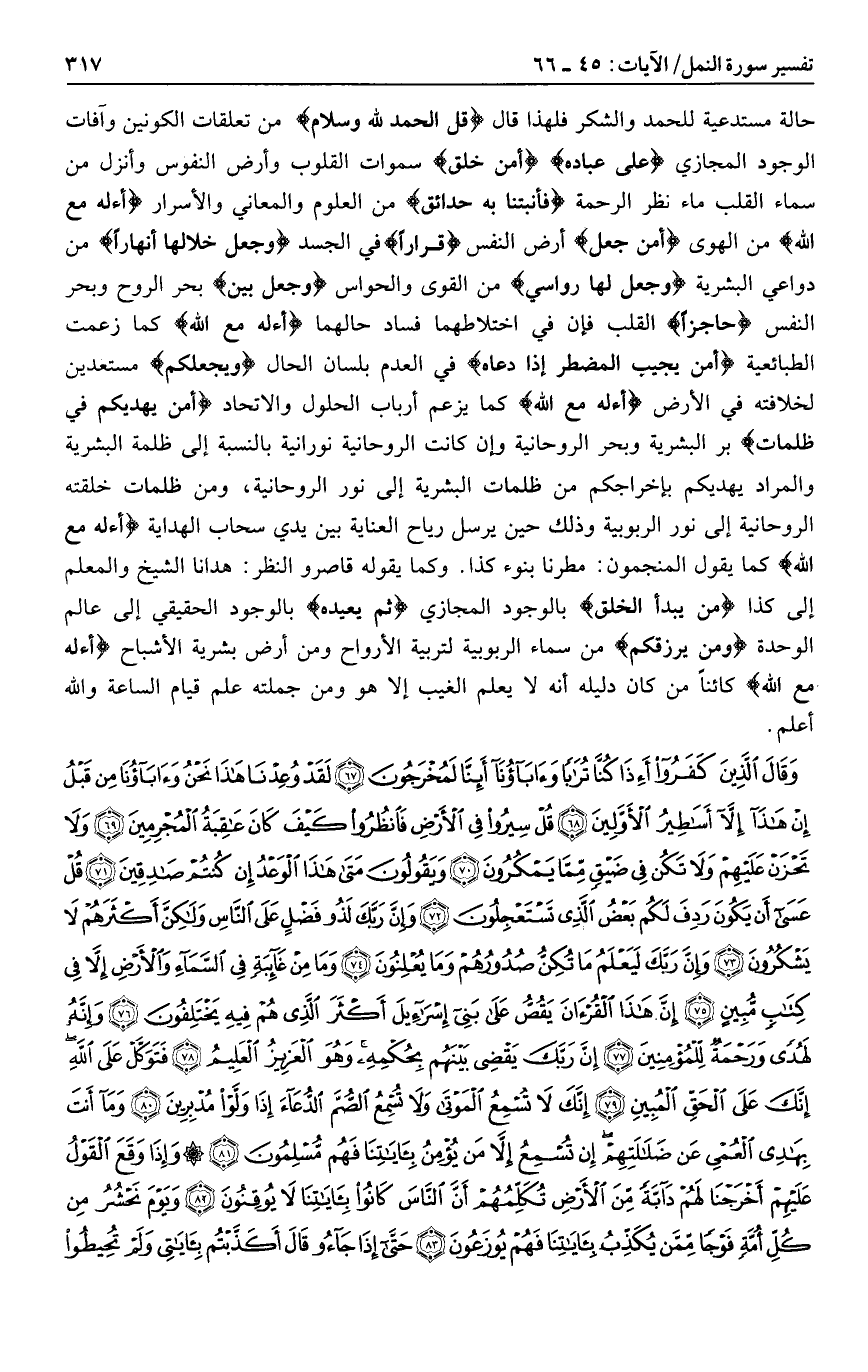 تفسير سورة النمل/ الآيات: ٤٥ ـ ٦٦ ٣١٧
حالة مستدعية للحمد والشكر فلهذا قال ﴿قل الحمد لله وسلام﴾ من تعلقات الكونين وآفات
الوجود المجازي ﴿على عباده﴾ ﴿أمن خلق﴾ سموات القلوب وأرض النفوس وأنزل من
سماء القلب ماء نظر الرحمة ﴿فأنبتنا به حدائق﴾ من العلوم والمعاني والأسرار ﴿أءله مع
الله﴾ من الهوى ﴿أمن جعل﴾ أرض النفس ﴿قراراً﴾ في الجسد ﴿وجعل خلالها أنهاراً﴾ من
دواعي البشرية ﴿وجعل لها رواسي﴾ من القوى والحواس ﴿وجعل بين﴾ بحر الروح وبحر
النفس ﴿حاجزاً﴾ القلب فإن في اختلاطهما فساد حالهما ﴿أءله مع الله﴾ كما زعمت
الطبائعية ﴿أمن يجيب المضطر إذا دعاه﴾ في العدم بلسان الحال ﴿ويجعلكم﴾ مستعدين
لخلافته في الأرض ﴿أءله مع الله﴾ كما يزعم أرباب الحلول والاتحاد ﴿أمن يهديكم في
ظلمات﴾ بر البشرية وبحر الروحانية وإن كانت الروحانية نورانية بالنسبة إلى ظلمة البشرية
والمراد يهديكم بإخراجكم من ظلمات البشرية إلى نور الروحانية، ومن ظلمات خلقته
الروحانية إلى نور الربوبية وذلك حين يرسل رياح العناية بين يدي سحاب الهداية ﴿أءله مع
الله﴾ كما يقول المنجمون: مطرنا بنوء كذا. وكما يقوله قاصرو النظر: هدانا الشيخ والمعلم
إلى كذا ﴿من يبدأ الخلق﴾ بالوجود المجازي ﴿ثم يعيده﴾ بالوجود الحقيقي إلى عالم
الوحدة ﴿ومن يرزقكم﴾ من سماء الربوبية لتربية الأرواح ومن أرض بشرية الأشباح ﴿أءله
مع الله﴾ كائناً من كان دليله أنه لا يعلم الغيب إلا هو ومن جملته علم قيام الساعة والله
أعلم.
وَقَالَ ٱلَّذِينَ كَفَرُوٓا۟ أَءِذَا كُنَّا تُرَٰبًا وَءَابَآؤُنَآ أَئِنَّا لَمُخْرَجُونَ ﴿٦٧﴾ لَقَدْ وُعِدْنَا هَٰذَا نَحْنُ وَءَابَآؤُنَا مِن قَبْلُ
إِنْ هَٰذَآ إِلَّآ أَسَٰطِيرُ ٱلْأَوَّلِينَ ﴿٦٨﴾ قُلْ سِيرُوا۟ فِى ٱلْأَرْضِ فَٱنظُرُوا۟ كَيْفَ كَانَ عَٰقِبَةُ ٱلْمُجْرِمِينَ ﴿٦٩﴾ وَلَا
تَحْزَنْ عَلَيْهِمْ وَلَا تَكُن فِى ضَيْقٍ مِّمَّا يَمْكُرُونَ ﴿٧٠﴾ وَيَقُولُونَ مَتَىٰ هَٰذَا ٱلْوَعْدُ إِن كُنتُمْ صَٰدِقِينَ ﴿٧١﴾ قُلْ
عَسَىٰٓ أَن يَكُونَ رَدِفَ لَكُم بَعْضُ ٱلَّذِى تَسْتَعْجِلُونَ ﴿٧٢﴾ وَإِنَّ رَبَّكَ لَذُو فَضْلٍ عَلَى ٱلنَّاسِ وَلَٰكِنَّ أَكْثَرَهُمْ لَا
يَشْكُرُونَ ﴿٧٣﴾ وَإِنَّ رَبَّكَ لَيَعْلَمُ مَا تُكِنُّ صُدُورُهُمْ وَمَا يُعْلِنُونَ ﴿٧٤﴾ وَمَا مِنْ غَآئِبَةٍ فِى ٱلسَّمَآءِ وَٱلْأَرْضِ إِلَّا فِى
كِتَٰبٍ مُّبِينٍ ﴿٧٥﴾ إِنَّ هَٰذَا ٱلْقُرْءَانَ يَقُصُّ عَلَىٰ بَنِىٓ إِسْرَٰٓءِيلَ أَكْثَرَ ٱلَّذِى هُمْ فِيهِ يَخْتَلِفُونَ ﴿٧٦﴾ وَإِنَّهُۥ
لَهُدًى وَرَحْمَةٌ لِّلْمُؤْمِنِينَ ﴿٧٧﴾ إِنَّ رَبَّكَ يَقْضِى بَيْنَهُم بِحُكْمِهِۦ ۚ وَهُوَ ٱلْعَزِيزُ ٱلْعَلِيمُ ﴿٧٨﴾ فَتَوَكَّلْ عَلَى ٱللَّهِ ۖ
إِنَّكَ عَلَى ٱلْحَقِّ ٱلْمُبِينِ ﴿٧٩﴾ إِنَّكَ لَا تُسْمِعُ ٱلْمَوْتَىٰ وَلَا تُسْمِعُ ٱلصُّمَّ ٱلدُّعَآءَ إِذَا وَلَّوْا۟ مُدْبِرِينَ ﴿٨٠﴾ وَمَآ أَنتَ
بِهَٰدِى ٱلْعُمْىِ عَن ضَلَٰلَتِهِمْ ۖ إِن تُسْمِعُ إِلَّا مَن يُؤْمِنُ بِـَٔايَٰتِنَا فَهُم مُّسْلِمُونَ ﴿٨١﴾ ۞ وَإِذَا وَقَعَ ٱلْقَوْلُ
عَلَيْهِمْ أَخْرَجْنَا لَهُمْ دَآبَّةً مِّنَ ٱلْأَرْضِ تُكَلِّمُهُمْ أَنَّ ٱلنَّاسَ كَانُوا۟ بِـَٔايَٰتِنَا لَا يُوقِنُونَ ﴿٨٢﴾ وَيَوْمَ نَحْشُرُ مِن
كُلِّ أُمَّةٍ فَوْجًا مِّمَّن يُكَذِّبُ بِـَٔايَٰتِنَا فَهُمْ يُوزَعُونَ ﴿٨٣﴾ حَتَّىٰٓ إِذَا جَآءُو قَالَ أَكَذَّبْتُم بِـَٔايَٰتِى وَلَمْ تُحِيطُوا۟